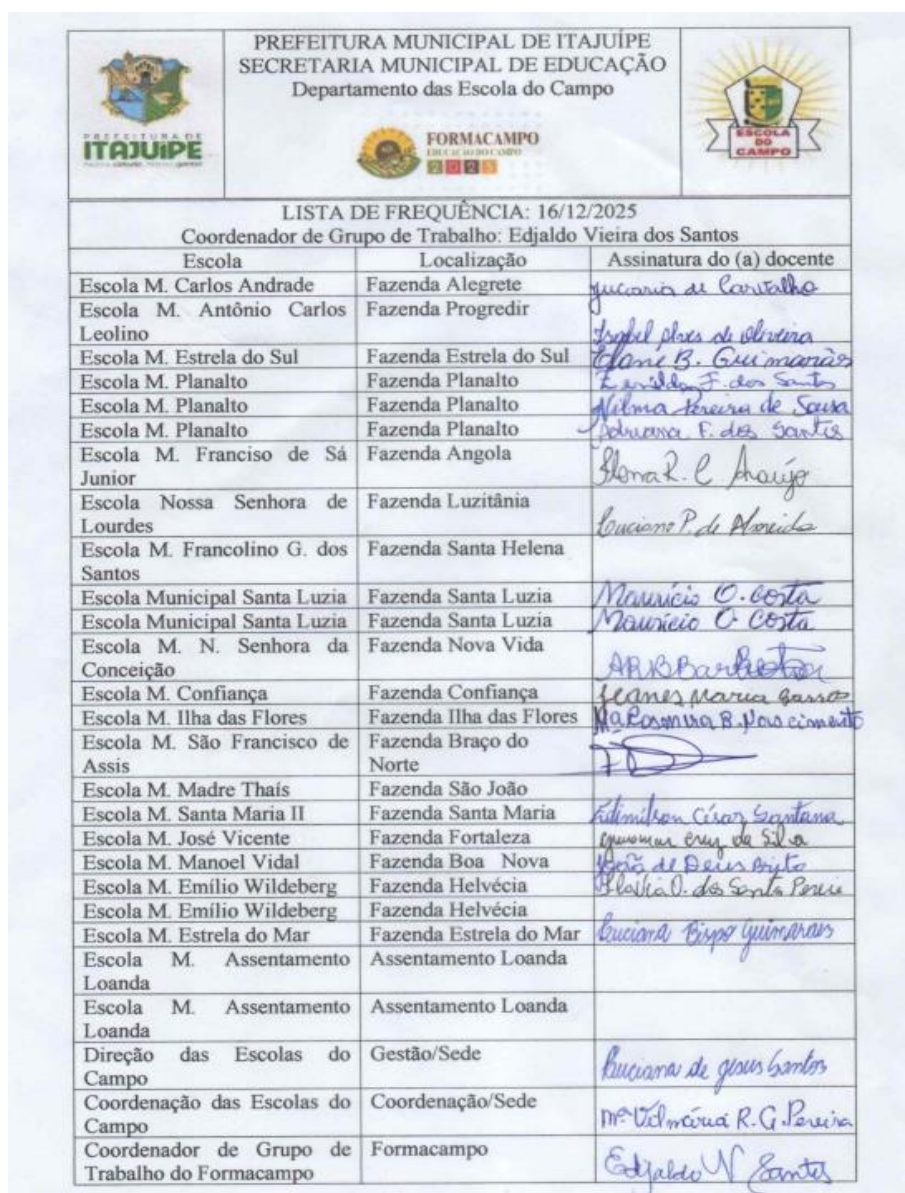 PREFEITURA MUNICIPAL DE ITAJUÍPE
SECRETARIA MUNICIPAL DE EDUCAÇÃO
Departamento das Escola do Campo
PREFEITURA DE
ITAJUÍPE
FORMACAMPO
EDUCAÇÃO DO CAMPO
ESCOLA
DO
CAMPO
LISTA DE FREQUÊNCIA: 16/12/2025
Coordenador de Grupo de Trabalho: Edjaldo Vieira dos Santos
Escola Localização Assinatura do (a) docente
Escola M. Carlos Andrade Fazenda Alegrete de Carvalho
Escola M. Antônio Carlos Fazenda Progredir
Leolino Isabel Alves de Oliveira
Escola M. Estrela do Sul Fazenda Estrela do Sul Elane B. Guimarães
Escola M. Planalto Fazenda Planalto F. dos Santos
Escola M. Planalto Fazenda Planalto Nilma Pereira de Sousa
Escola M. Planalto Fazenda Planalto Adriana F. dos Santos
Escola M. Franciso de Sá Fazenda Angola
Junior R. C. Araújo
Escola Nossa Senhora de Fazenda Luzitânia
Lourdes P. de Almeida
Escola M. Francolino G. dos Fazenda Santa Helena
Santos
Escola Municipal Santa Luzia Fazenda Santa Luzia Maurício O. Costa
Escola Municipal Santa Luzia Fazenda Santa Luzia Maurício O. Costa
Escola M. N. Senhora da Fazenda Nova Vida
Conceição
Escola M. Confiança Fazenda Confiança Jeanes Maria Barros
Escola M. Ilha das Flores Fazenda Ilha das Flores Mª Rosmira B. Nascimento
Escola M. São Francisco de Fazenda Braço do
Assis Norte
Escola M. Madre Thaís Fazenda São João
Escola M. Santa Maria II Fazenda Santa Maria Edimilson César Santana
Escola M. José Vicente Fazenda Fortaleza Cruz da Silva
Escola M. Manoel Vidal Fazenda Boa Nova João de Deus Brito
Escola M. Emílio Wildeberg Fazenda Helvécia Flavia O. dos Santos
Escola M. Emílio Wildeberg Fazenda Helvécia
Escola M. Estrela do Mar Fazenda Estrela do Mar Luciana Bispo Guimaraes
Escola M. Assentamento Assentamento Loanda
Loanda
Escola M. Assentamento Assentamento Loanda
Loanda
Direção das Escolas do Gestão/Sede
Campo Luciana de Jesus Santos
Coordenação das Escolas do Coordenação/Sede
Campo Mª Vilmária R. G. Pereira
Coordenador de Grupo de Formacampo
Trabalho do Formacampo Edjaldo V Santos